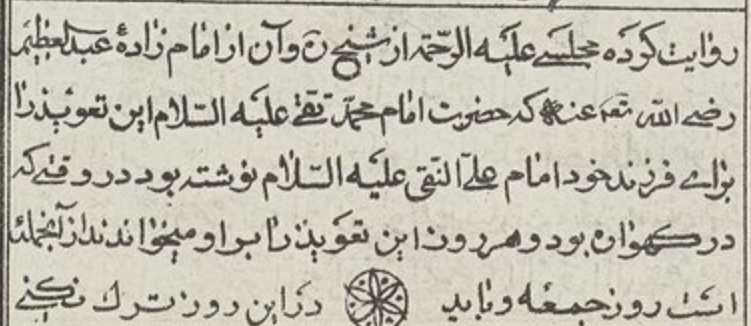 روایت کرده مجلسے علیه الرحمة از شیخ ره و آن از امام زادهٔ عبدالعظیم
رضے الله عنه که حضرت امام محمد تقے علیه السّلام این تعویذ را
براے فرزند خود امام علے النقی علیه السّلام نوشته بود در وقتے که
در کهواره بود و هر روز این تعویذ را بر او میخواندند از آنجمله
است روز جمعه و باید در این روز ترك نکنے